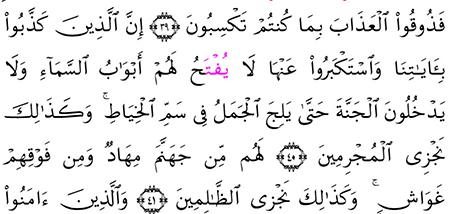 فَذُوقُوا۟ ٱلْعَذَابَ بِمَا كُنتُمْ تَكْسِبُونَ ﴿٣٩﴾ إِنَّ ٱلَّذِينَ كَذَّبُوا۟
بِـَٔايَـٰتِنَا وَٱسْتَكْبَرُوا۟ عَنْهَا لَا يُفْتَحُ لَهُمْ أَبْوَٰبُ ٱلسَّمَآءِ وَلَا
يَدْخُلُونَ ٱلْجَنَّةَ حَتَّىٰ يَلِجَ ٱلْجَمَلُ فِى سَمِّ ٱلْخِيَاطِ ۚ وَكَذَٰلِكَ
نَجْزِى ٱلْمُجْرِمِينَ ﴿٤٠﴾ لَهُم مِّن جَهَنَّمَ مِهَادٌ وَمِن فَوْقِهِمْ
غَوَاشٍ ۚ وَكَذَٰلِكَ نَجْزِى ٱلظَّـٰلِمِينَ ﴿٤١﴾ وَٱلَّذِينَ ءَامَنُوا۟